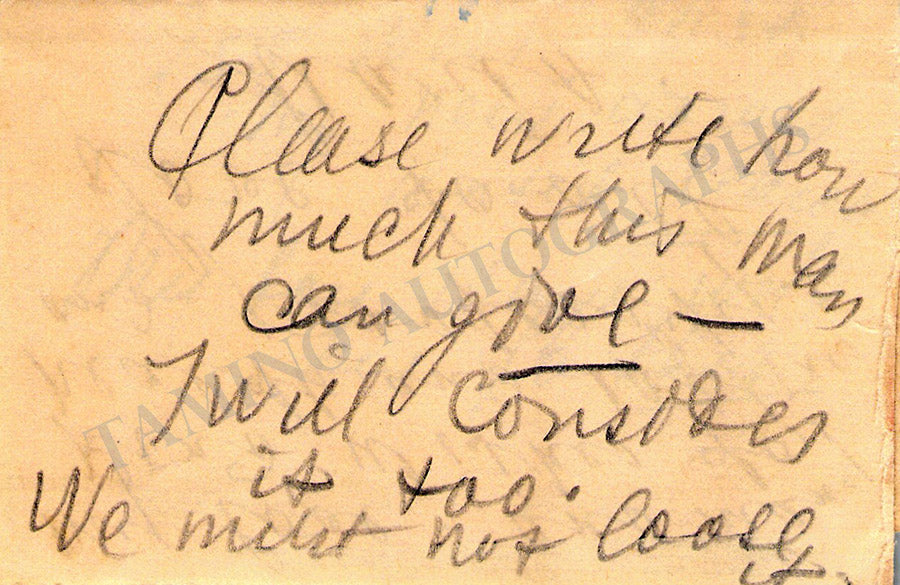 Please write how
much this man
can give —
I will consider
it too.
We must not loose
it.
TAMINO AUTOGRAPHS